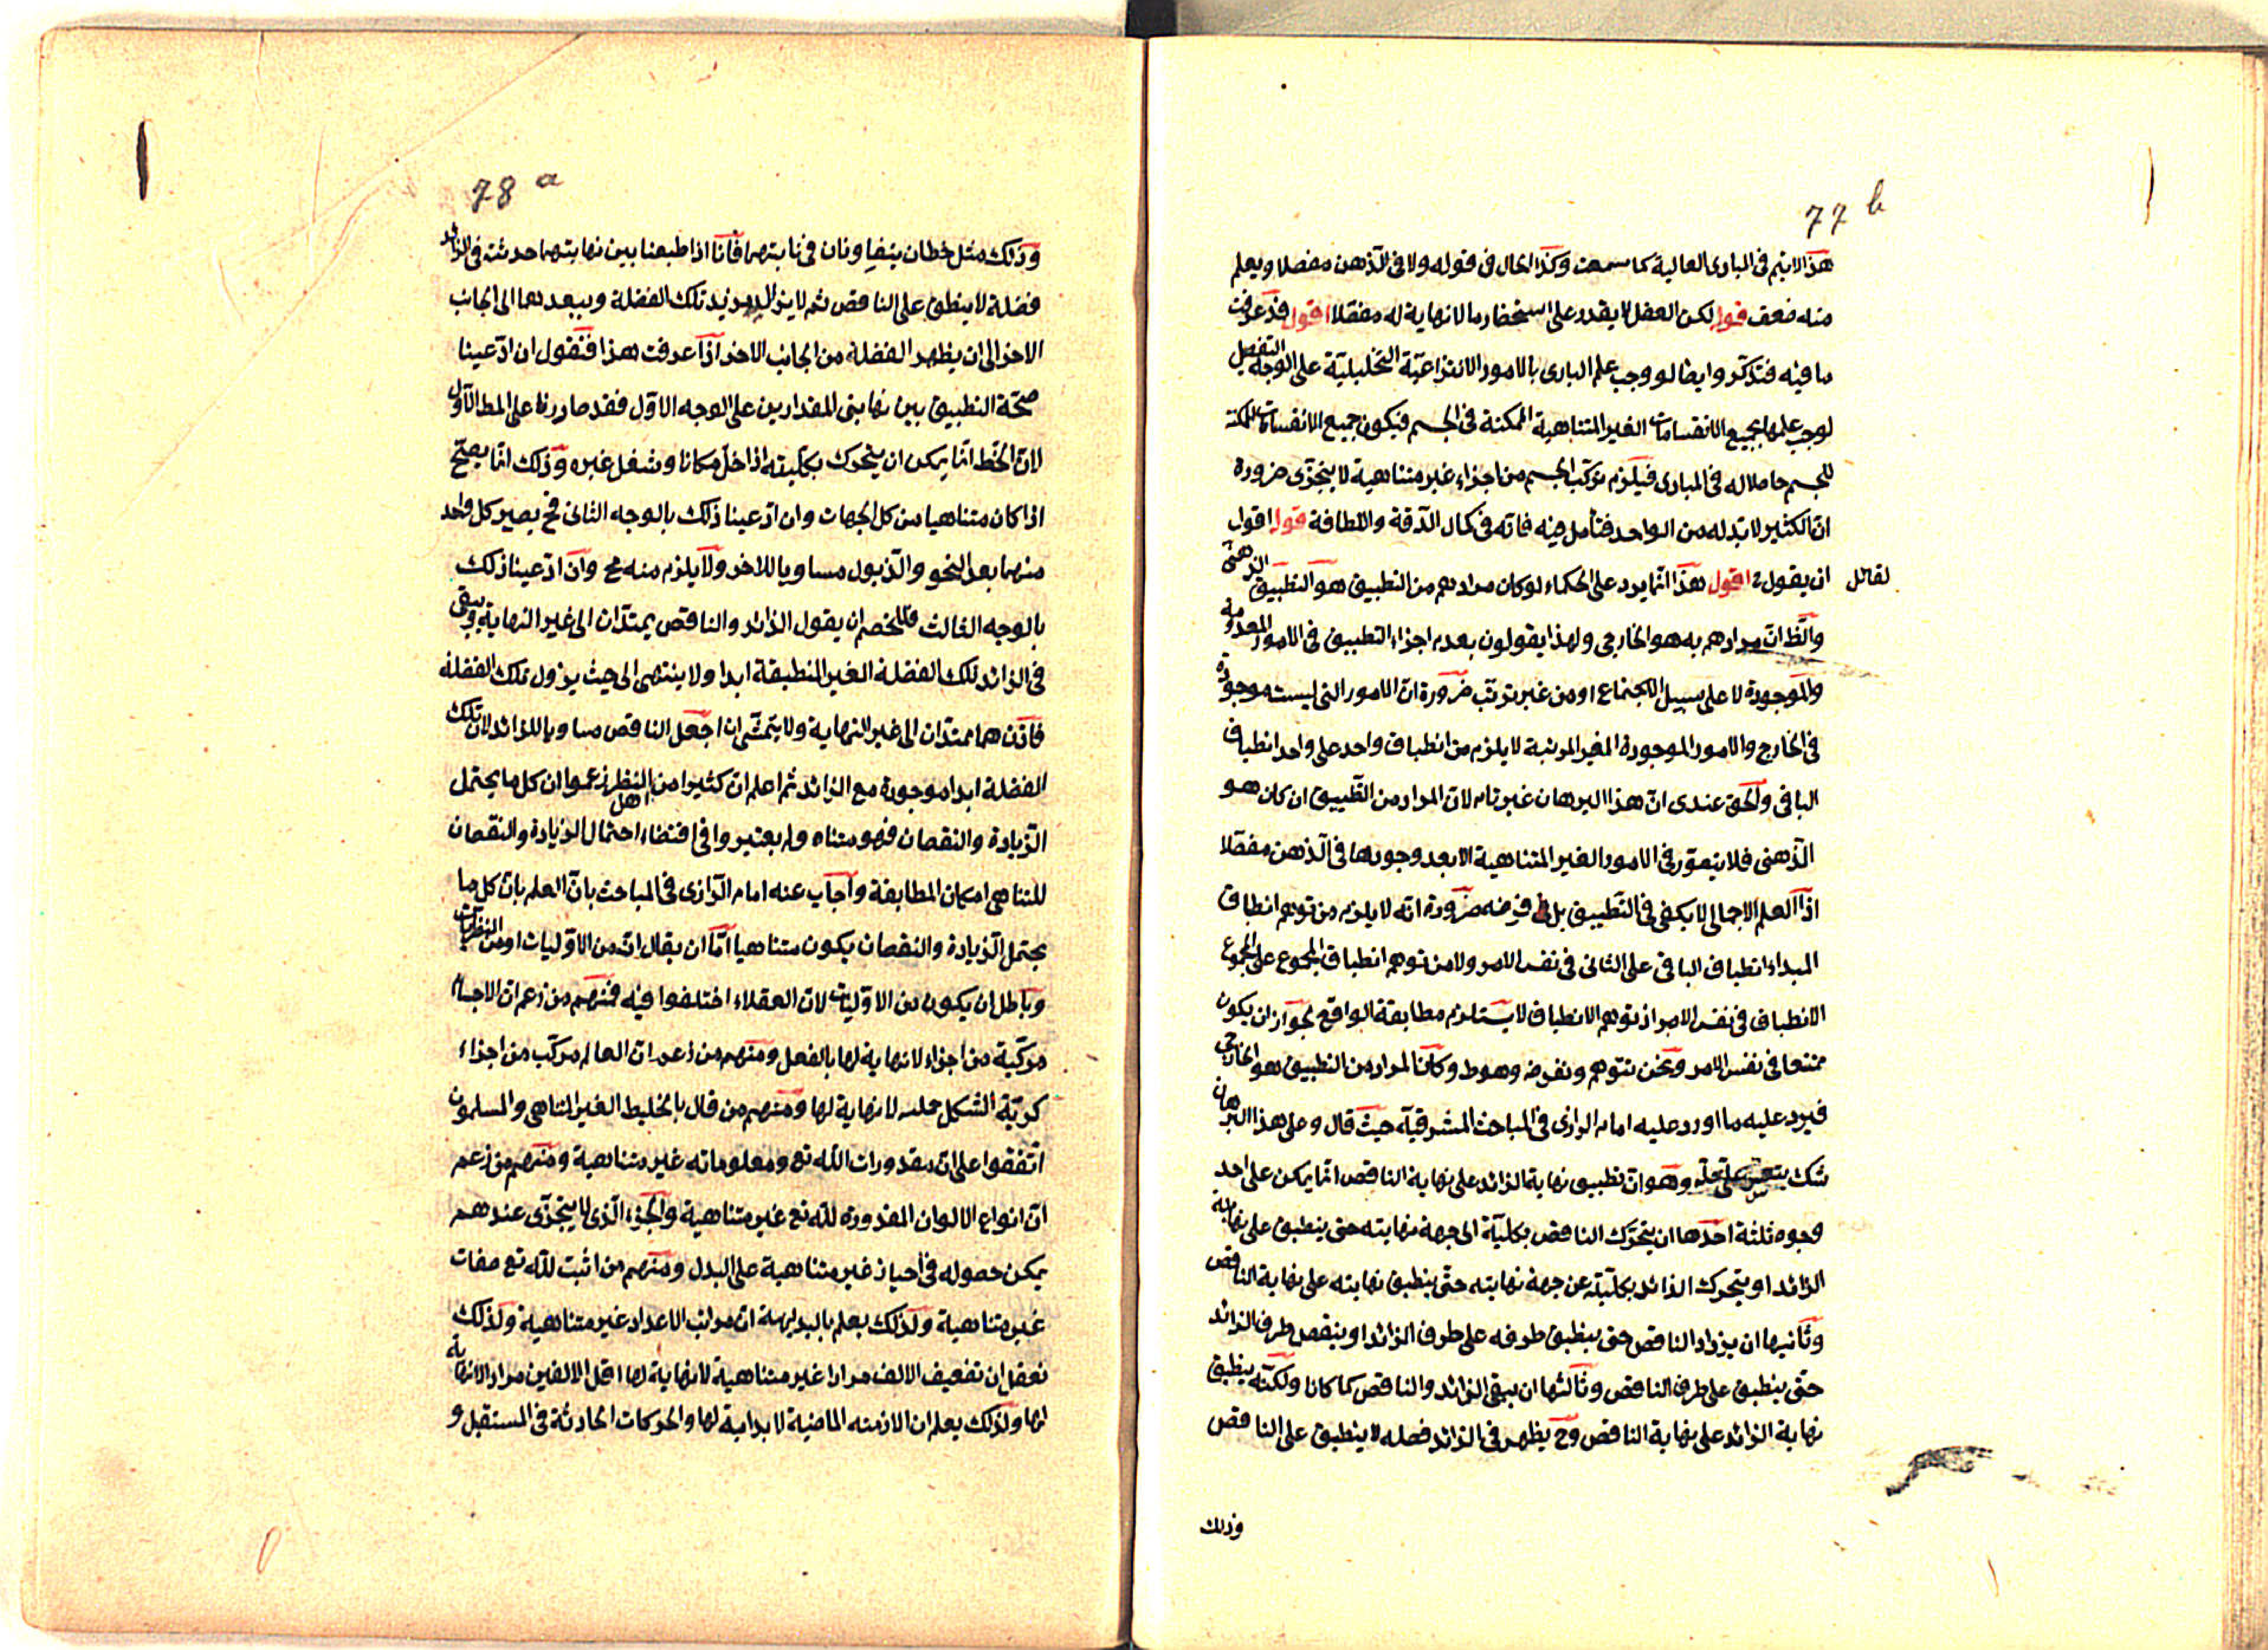 77 b
هذا لا يتم فى المبادى العالية كما سمعت وكذا الحال فى قوله ولا فى الذهن مفصلا ويعلم
منه ضعف قوله لكن العقل لا يقدر على استحضار ما لا نهاية له مفصلا اقول قد عرفت
ما فيه فتذكر وايضا لو وجب علم البارى بالامور الانتزاعية التحليلية على الوجه التفصيل
لوجب علمها بجميع الانقسامات الغير المتناهية الممكنة فى الجسم فيكون جميع الانقسامات الممكنة
للجسم حاصلا له فى المبادى فيلزم تركب الجسم من اجزاء غير متناهية لا يتجزى ضرورة
ان الكثير لا بد له من الواحد فتأمل فيه فانه فى كمال الدقة واللطافة قوله اقول
لقائل ان يقول اقول هذا انما يرد على الحكماء لو كان مرادهم من التطبيق هو التطبيق الذهنى
والظ ان مرادهم به هو الخارجى ولهذا يقولون بعدم اجزاء التطبيق فى الامور المعدومة
والموجودة لا على سبيل الاجتماع او من غير ترتب ضرورة ان الامور التى ليست موجودة
فى الخارج والامور الموجودة الغير المرتبة لا يلزم من انطباق واحد على واحد انطباق
الباقى والحق عندى ان هذا البرهان غير تام لان المراد من التطبيق ان كان هو
الذهنى فلا يتصور فى الامور الغير المتناهية الا بعد وجودها فى الذهن مفصلا
اذ العلم الاجمالى لا يكفى فى التطبيق بل فى فرضه ضرورة انه لا يلزم من توهم انطباق
المبداء انطباق الباقى على الثانى فى نفس الامر ولا من توهم انطباق المجموع على المجموع
الانطباق فى نفس الامر اذ توهم الانطباق لا يستلزم مطابقة الواقع لجواز ان يكون
ممتنعا فى نفس الامر ونحن نتوهم ونفرضه وهو ط وكان المراد من التطبيق هو الخارجى
فيرد عليه ما اورد عليه امام الرازى فى المباحث المشرقية حيث قال وعلى هذا البرهان
شك يتعسر على حله وهو ان تطبيق نهاية الزائد على نهاية الناقص انما يمكن على احد
وجوه ثلثة احدها ان يتحرك الناقص بكلية الى جهة نهايته حتى ينطبق على نهاية
الزائد او يتحرك الزائد بكليته عن جهة نهايته حتى ينطبق نهايته على نهاية الناقص
وثانيها ان يزداد الناقص حتى ينطبق طرفه على طرف الزائد او ينقص طرف الزائد
حتى ينطبق على طرف الناقص وثالثها ان يبقى الزائد والناقص كما كانا ولكنه ينطبق
نهاية الزائد على نهاية الناقص وح يظهر فى الزائد فصله لا ينطبق على الناقص
وذلك
78 a
وذلك مثل خطان يتفاوتان فى نهايتهما فانا اذا طبعنا بين نهايتهما حدثت فى الزائد
فضلة لا ينطبق على الناقص ثم لا يزال يزيد تلك الفضلة ويبعدها الى الجانب
الاخر الى ان يظهر الفضلة من الجانب الاخر اذا عرفت هذا فنقول ان ادعينا
صحة التطبيق بين نهايتى المقدارين على الوجه الاول فقد صادرنا على المط الاول
لان الخط انما يمكن ان يتحرك بكليته اذا خلى مكانا وشغل غيره وذلك انما يصح
اذا كان متناهيا من كل الجهات وان ادعينا ذلك بالوجه الثانى فح يصير كل واحد
منهما بعد النحو والذبول مساويا للاخر ولا يلزم منه مح وان ادعينا ذلك
بالوجه الثالث فللخصم ان يقول الزائد والناقص يمتدان الى غير النهاية ويبقى
فى الزائد تلك الفضلة الغير المنطبقة ابدا ولا ينتهى الى حيث يزول تلك الفضلة
فاذن هما ممتدان الى غير النهاية ولا يتمشى ان اجعل الناقص مساويا للزائد لان تلك
الفضلة ابدا موجودة مع الزائد ثم اعلم ان كثيرا من اهل النظر زعموا ان كل ما يحتمل
الزيادة والنقصان فهو متناه ولم يعتبروا فى اقتضاء احتمال الزيادة والنقصان
للتناهى امكان المطابقة واجاب عنه امام الرازى فى المباحث بان العلم بان كل ما
يحتمل الزيادة والنقصان يكون متناهيا اما ان يقال انه من الاوليات او من النظريات
وباطل ان يكون من الاوليات لان العقلاء اختلفوا فيه فمنهم من زعم ان الاجسام
مركبة من اجزاء لا نهاية لها بالفعل ومنهم من زعم ان العالم مركب من اجزاء
كرية الشكل صلبه لا نهاية لها ومنهم من قال بالخليط الغير المتناهى والمسلمون
اتفقوا على ان مقدورات الله تع ومعلوماته غير متناهية ومنهم من زعم
ان انواع الالوان المقدورة لله تع غير متناهية والجزء الذى لا يتجزى عندهم
يمكن حصوله فى احياز غير متناهية على البدل ومنهم من اثبت لله تع صفات
غير متناهية ولذلك يعلم بالبديهة ان مراتب الاعداد غير متناهية ولذلك
نعقل ان تضعيف الالف مرارا غير متناهية لا نهاية لها اقل الالفين مرارا لا نهاية
لها ولذلك يعلم ان الازمنه الماضية لا بداية لها والحركات الحادثة فى المستقبل و